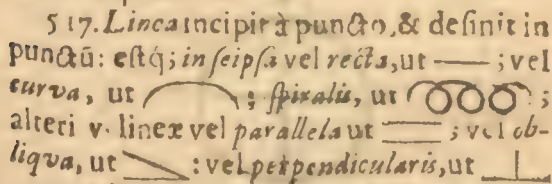 517. Linea incipit à puncto, & definit in
punctū: estq́; in seipsa vel recta, ut —— ; vel
curva, ut ; spiralis, ut ;
alteri v. lineæ vel parallela ut ; vel ob-
liqva, ut : vel perpendicularis, ut